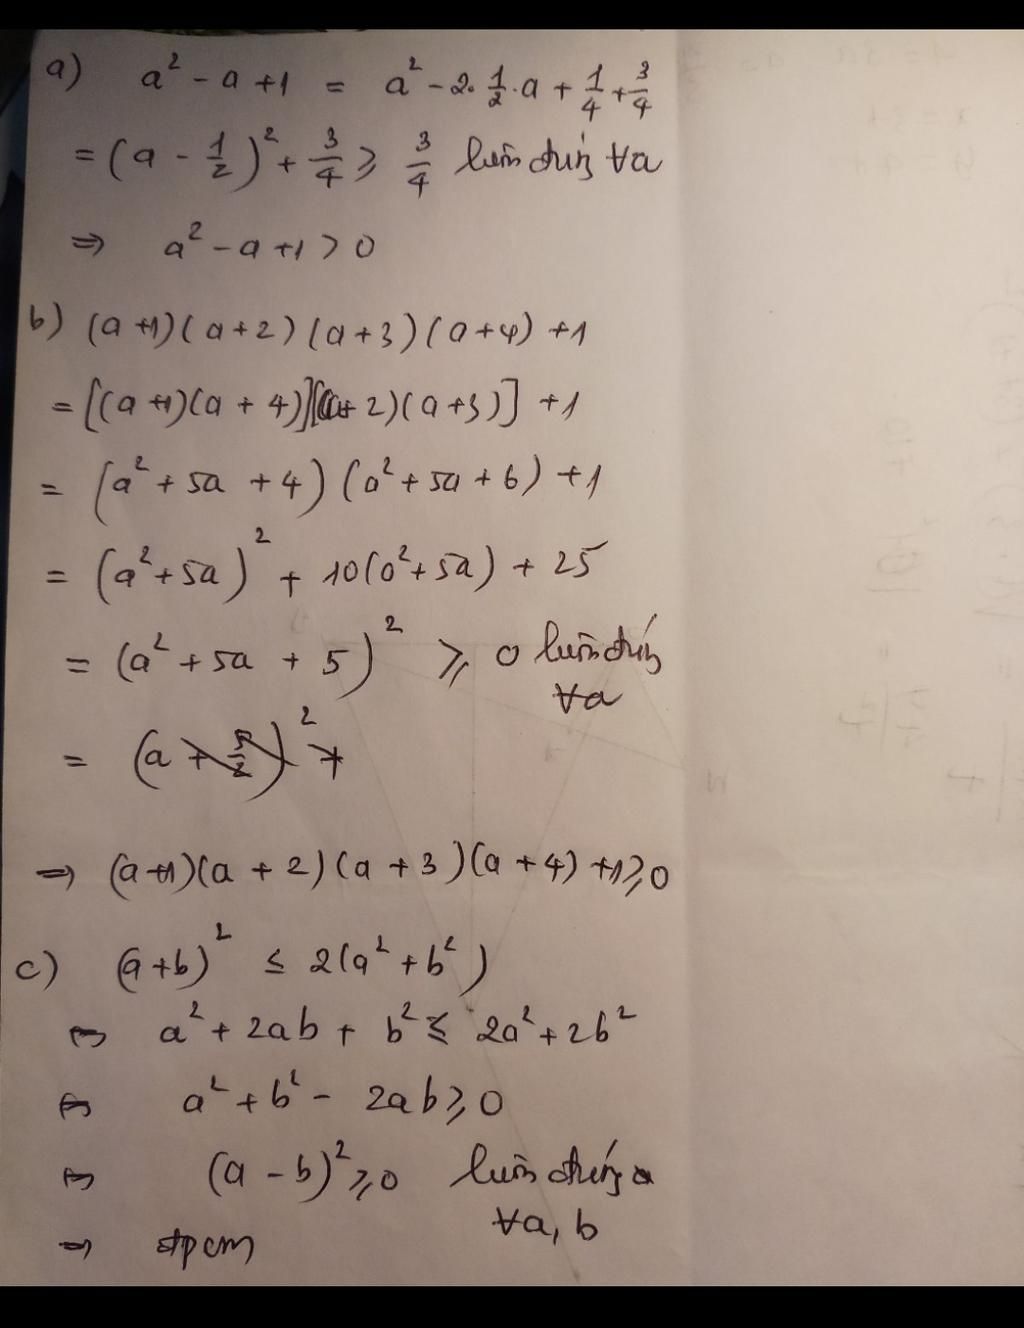 a) a² - a + 1 = a² - 2. 1/2 .a + 1/4 + 3/4
= (a - 1/2)² + 3/4 ⩾ 3/4 luôn đúng ∀a
⇒ a² - a + 1 > 0
b) (a+1)(a+2)(a+3)(a+4) + 1
= [(a+1)(a+4)][(a+2)(a+3)] + 1
= (a² + 5a + 4)(a² + 5a + 6) + 1
= (a² + 5a)² + 10(a² + 5a) + 25
= (a² + 5a + 5)² ⩾ 0 luôn đúng
∀a
= (a + 5/2)² +
⇒ (a+1)(a+2)(a+3)(a+4) + 1 ⩾ 0
c) (a+b)² ≤ 2(a² + b²)
⇔ a² + 2ab + b² ≤ 2a² + 2b²
⇔ a² + b² - 2ab ⩾ 0
⇔ (a - b)² ⩾ 0 luôn đúng
∀a, b
⇒ đpcm